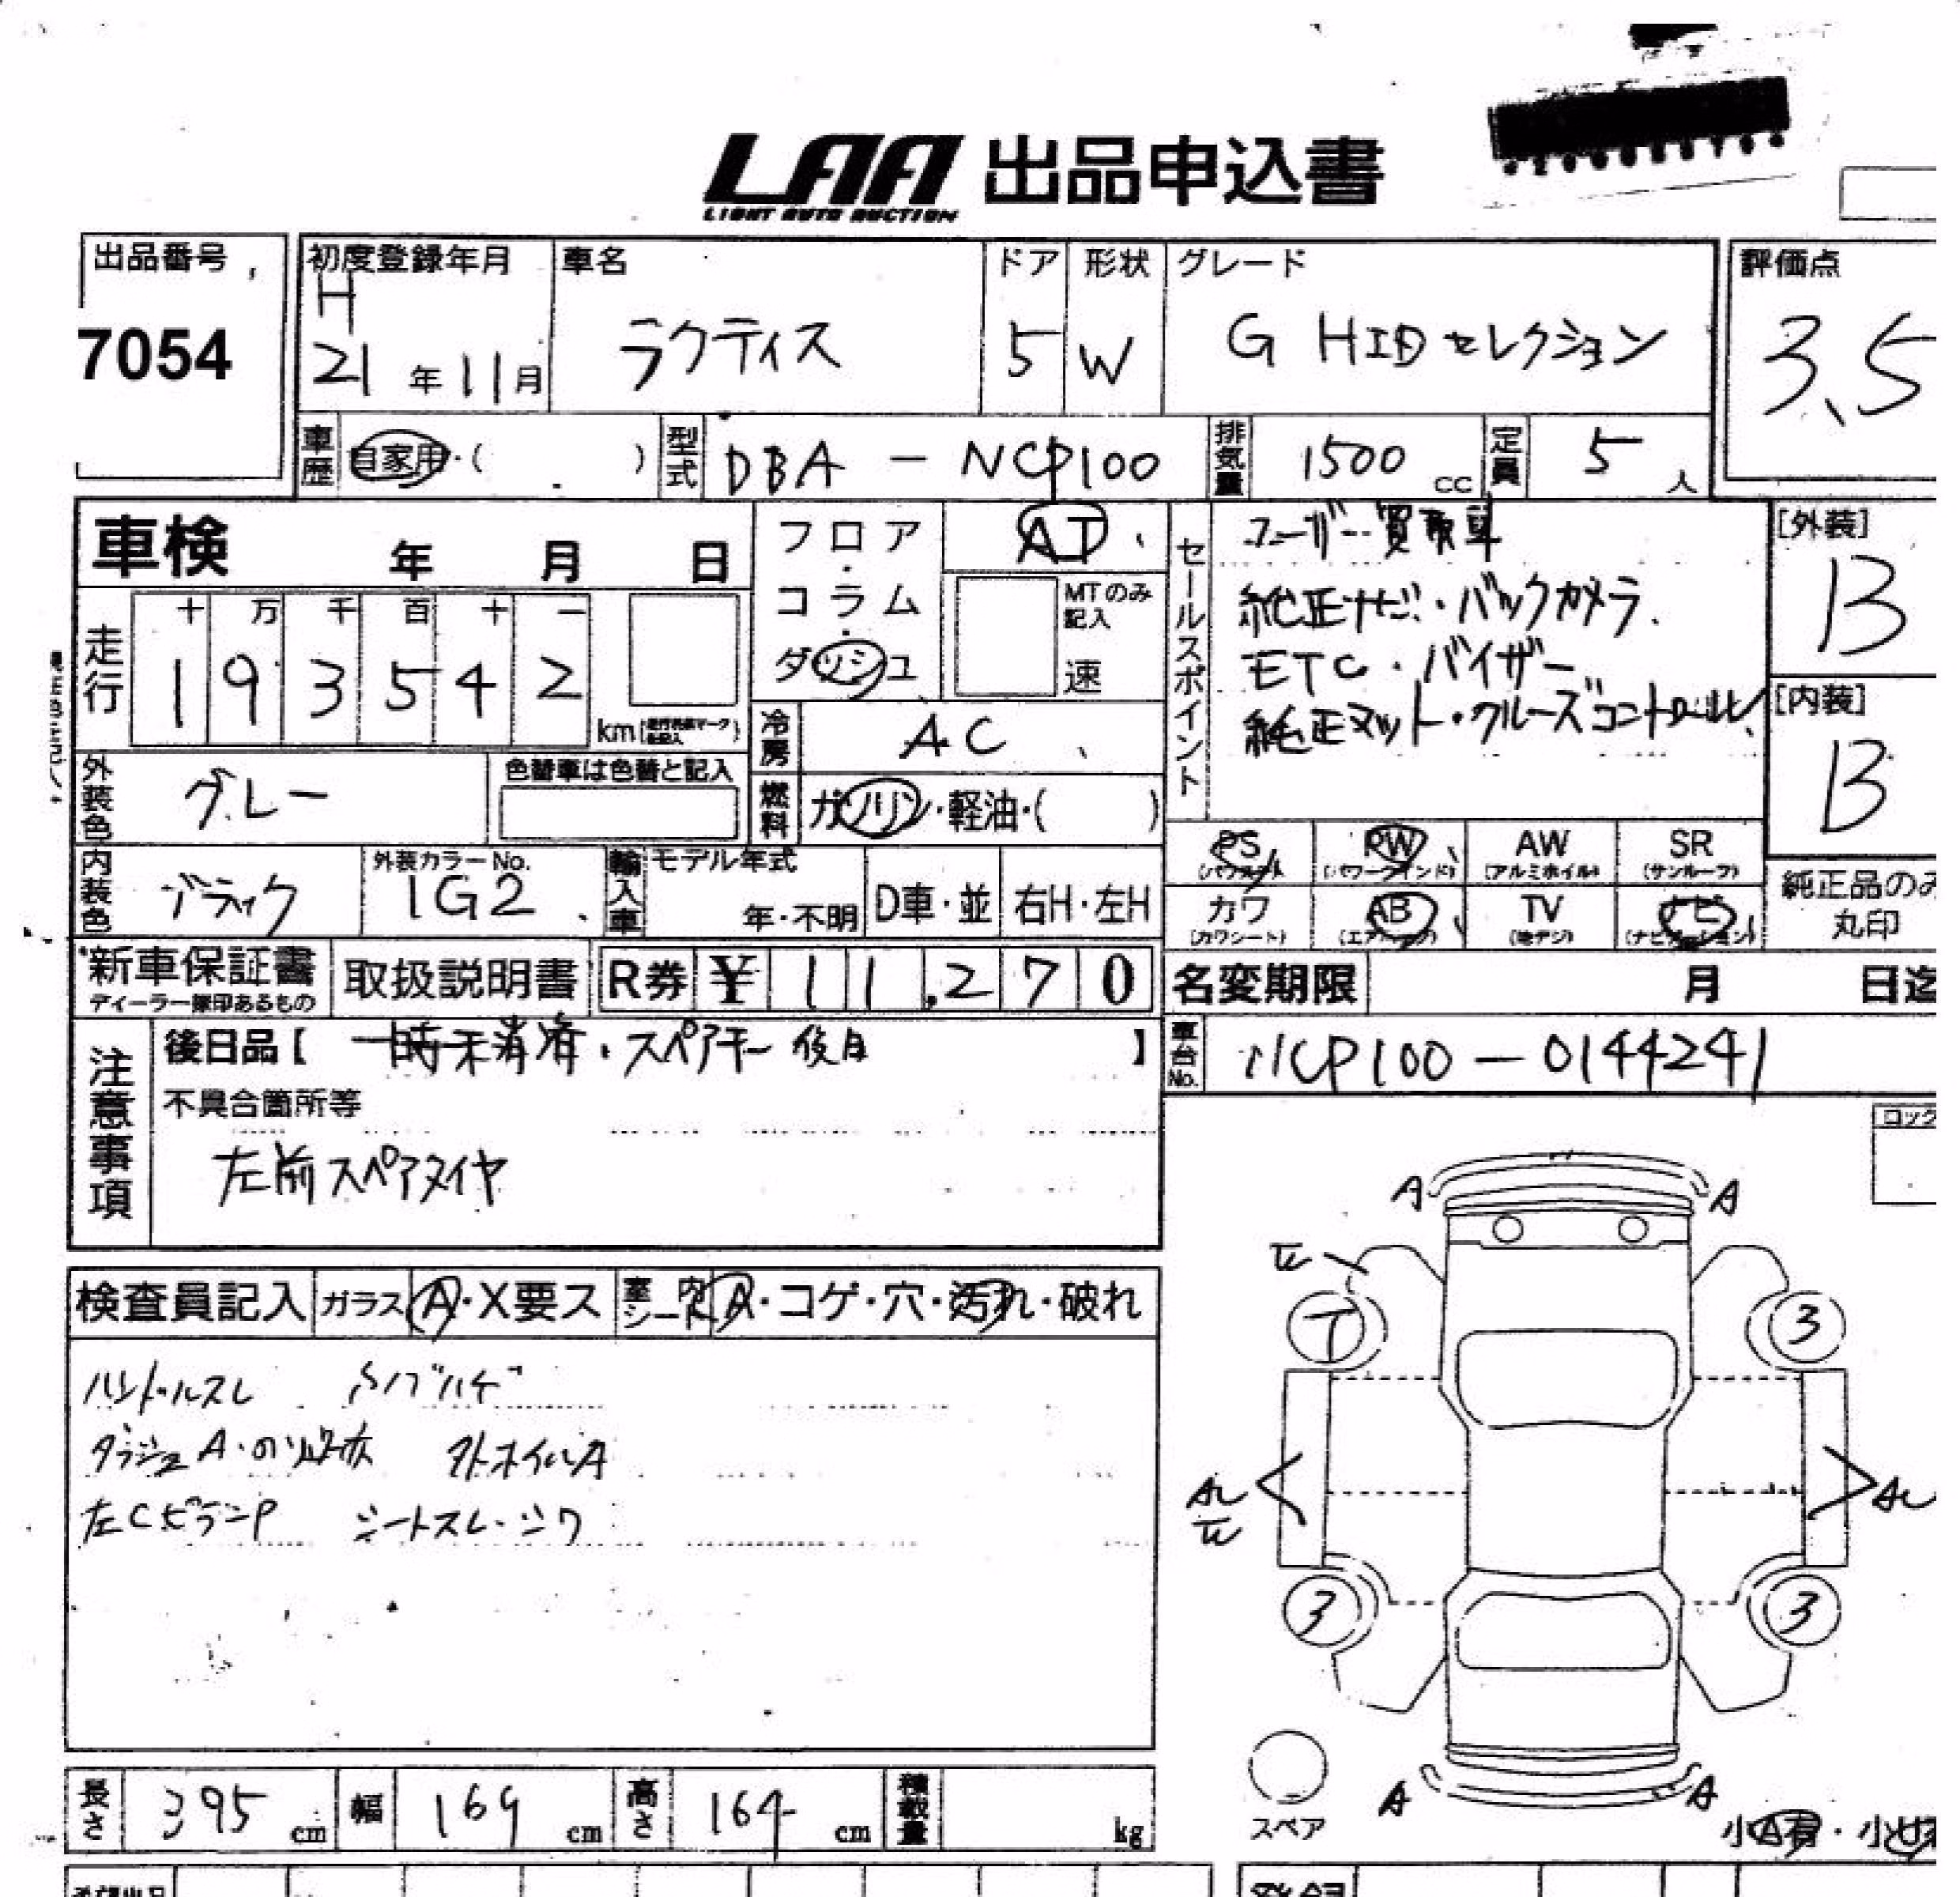 LAA 出品申込書
LIGHT AUTO AUCTION
出品番号
7054
初度登録年月
H
21年11月
車名
ラクティス
ドア
5
形状
W
グレード
G HIDセレクション
評価点
3.5
車歴
自家用・( )
型式
DBA - NCP100
排気量
1500 cc
定員
5 人
車検 年 月 日
フロア・コラム・ダッシュ
AT
MTのみ記入
速
セールスポイント
ユーザー買取車
純正ナビ・バックカメラ.
ETC・バイザー
純正マット・クルーズコントロール
[外装]
B
[内装]
B
走行
十 万 千 百 十 一
1 9 3 5 4 2
km
冷房
AC
外装色
グレー
色替車は色替と記入
燃料
ガソリン・軽油・( )
内装色
ブラック
外装カラーNo.
1G2
輸入車
モデル年式
年・不明
D車・並
右H・左H
PS PW AW SR
(パワステ) (パワーウインド) (アルミホイル) (サンルーフ)
カワ AB TV ナビ
(カワシート) (エアバッグ) (地デジ) (ナビゲーション)
純正品のみ
丸印
新車保証書
ディーラー採印あるもの
取扱説明書
R券 ¥ 11,270
名変期限 月 日迄
注意事項
後日品【 一時未消済・スペアキー後日 】
車台No.
NCP100-0144241
不具合箇所等
左前スペアタイヤ
ロック
検査員記入
ガラス A・X要ス
室内シート A・コゲ・穴・汚れ・破れ
ハンドルスレ
ダッシュA・
左Cピラー
シートスレ・シワ
A A
T 3
3 3
A A
スペア
長さ 395 cm
幅 169 cm
高さ 164 cm
積載量 kg
小A有・小